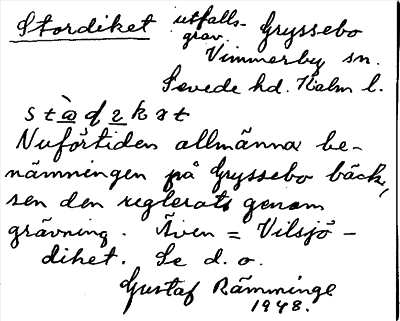 Stordiket utfalls-
grav. Gryssebo
Vimmerby sn.
Sevede hd. Kalm l.
Nuförtiden allmänna be-
nämningen på Gryssebo bäck,
sen den reglerats genom
grävning. Även = Vilsjö-
diket. Se d. o.
Gustaf Rämminge
1948.